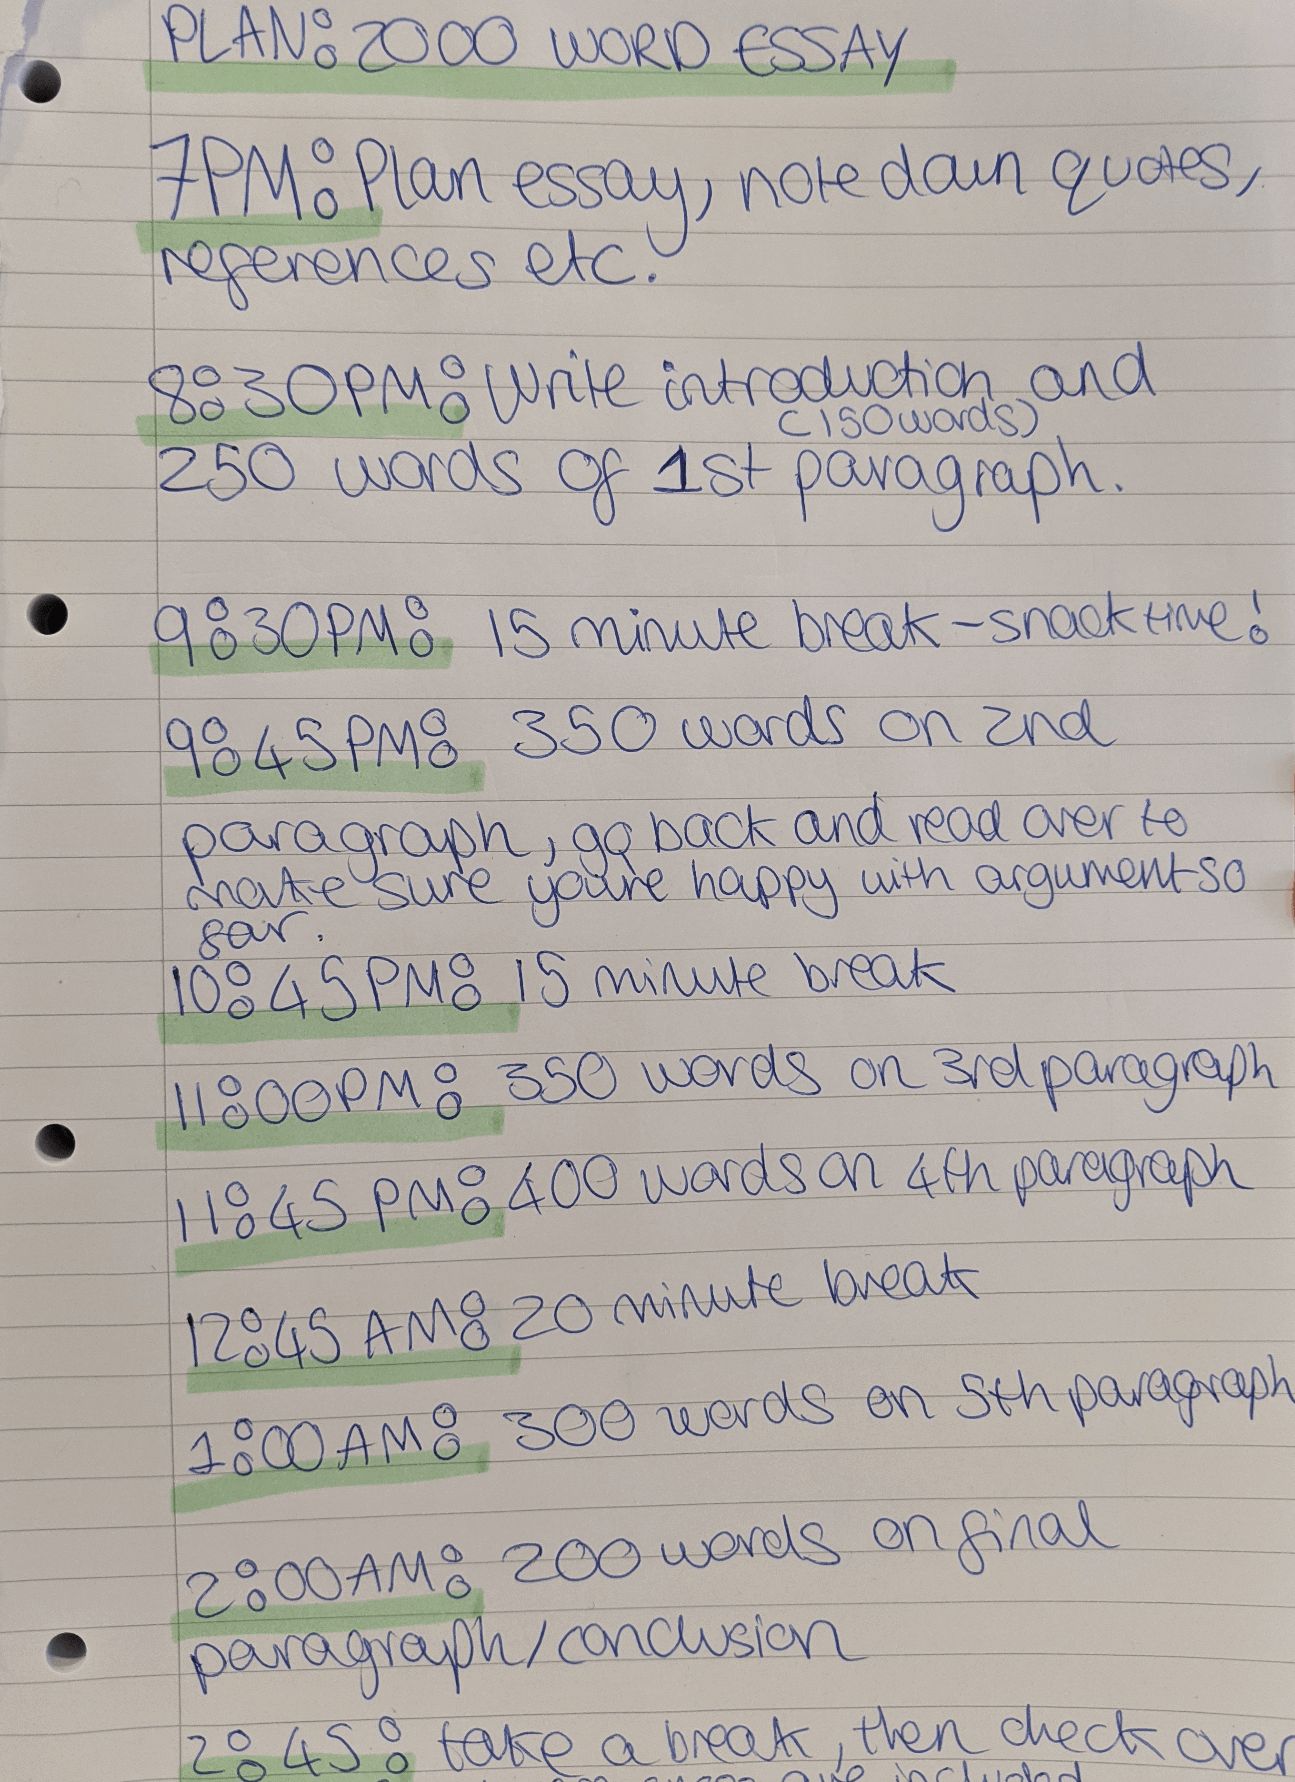 PLAN: 2000 WORD ESSAY
7PM: Plan essay, note down quotes,
references etc.
8:30PM: Write introduction and
(150 words)
250 words of 1st paragraph.
9:30PM: 15 minute break - snack time!
9:45PM: 350 words on 2nd
paragraph, go back and read over to
make sure you're happy with argument so
far.
10:45PM: 15 minute break
11:00PM: 350 words on 3rd paragraph
11:45 PM: 400 words on 4th paragraph
12:45 AM: 20 minute break
1:00AM: 300 words on 5th paragraph
2:00AM: 200 words on final
paragraph/conclusion
2:45: take a break, then check over
are included